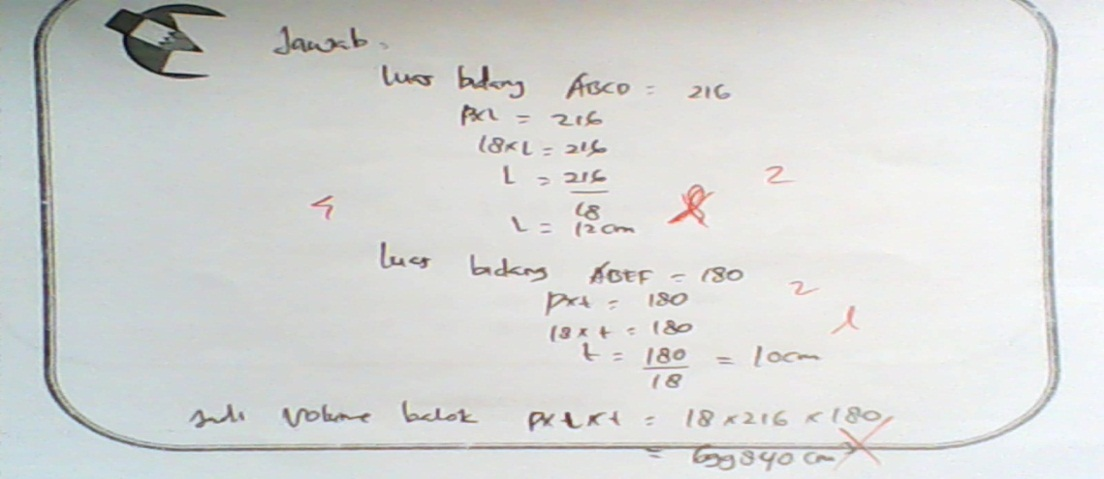 Jawab.
Luas bidang ABCD = 216
pxL = 216
18xL = 216
L = 216
18
2
4
L = 12cm
Luas bidang ABEF = 180
2
pxt = 180
18 x t = 180
1
t = 180 = 10cm
18
Jadi Volume balok pxLxt = 18 x 216 x 180
= 699840 cm³